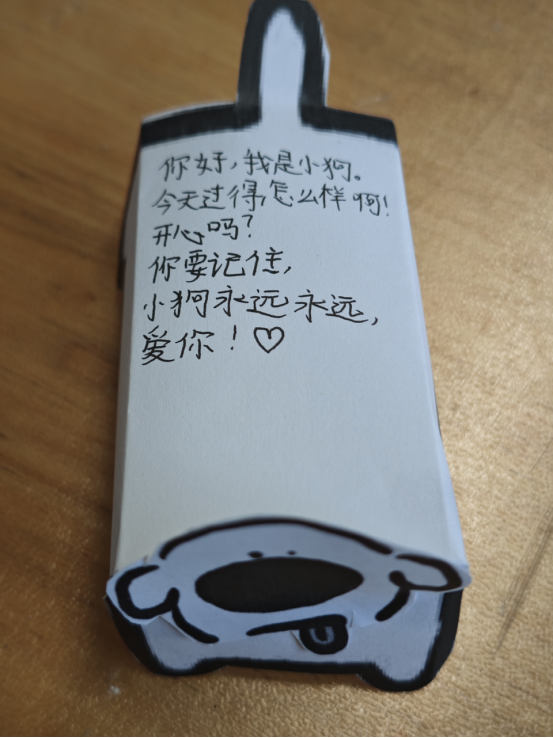 你好,我是小狗。
今天过得怎么样啊!
开心吗?
你要记住,
小狗永远永远,
爱你!♡